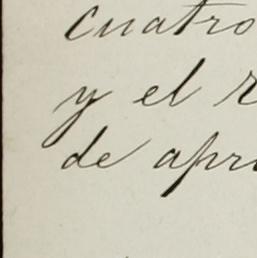 cuatro
y el
de apr